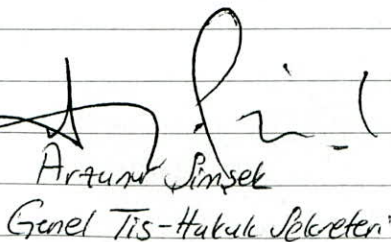 Arzunur Şimşek
Genel Tis-Hukuk Sekreteri